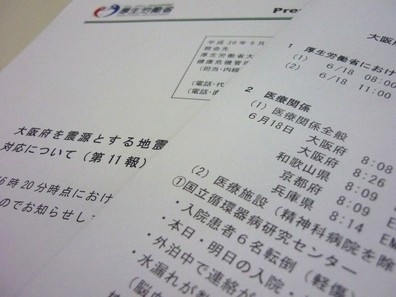 厚生労働省
Pre
平成30年6月
照会先
厚生労働省大
健康危機管理
(担当・内線
(電話・代
(電話・直
大阪府を震源とする地震
対応について(第11報)
6時20分時点におけ
のでお知らせし
大阪府
1 厚生労働省におけ
(1) 6/18 08:00
(2) 6/18 11:00
2 医療関係
(1) 医療関係全般
6月18日 大阪府 8:08
大阪府 8:26
和歌山県 8:08
京都府 8:09
兵庫県 8:09
8:14
(2) 医療施設(精神科病院を除
①国立循環器病研究センター
・入院患者6名転倒(軽傷)
・本日・明日の入院・
・外泊中で連絡が
・水漏れが
(脳